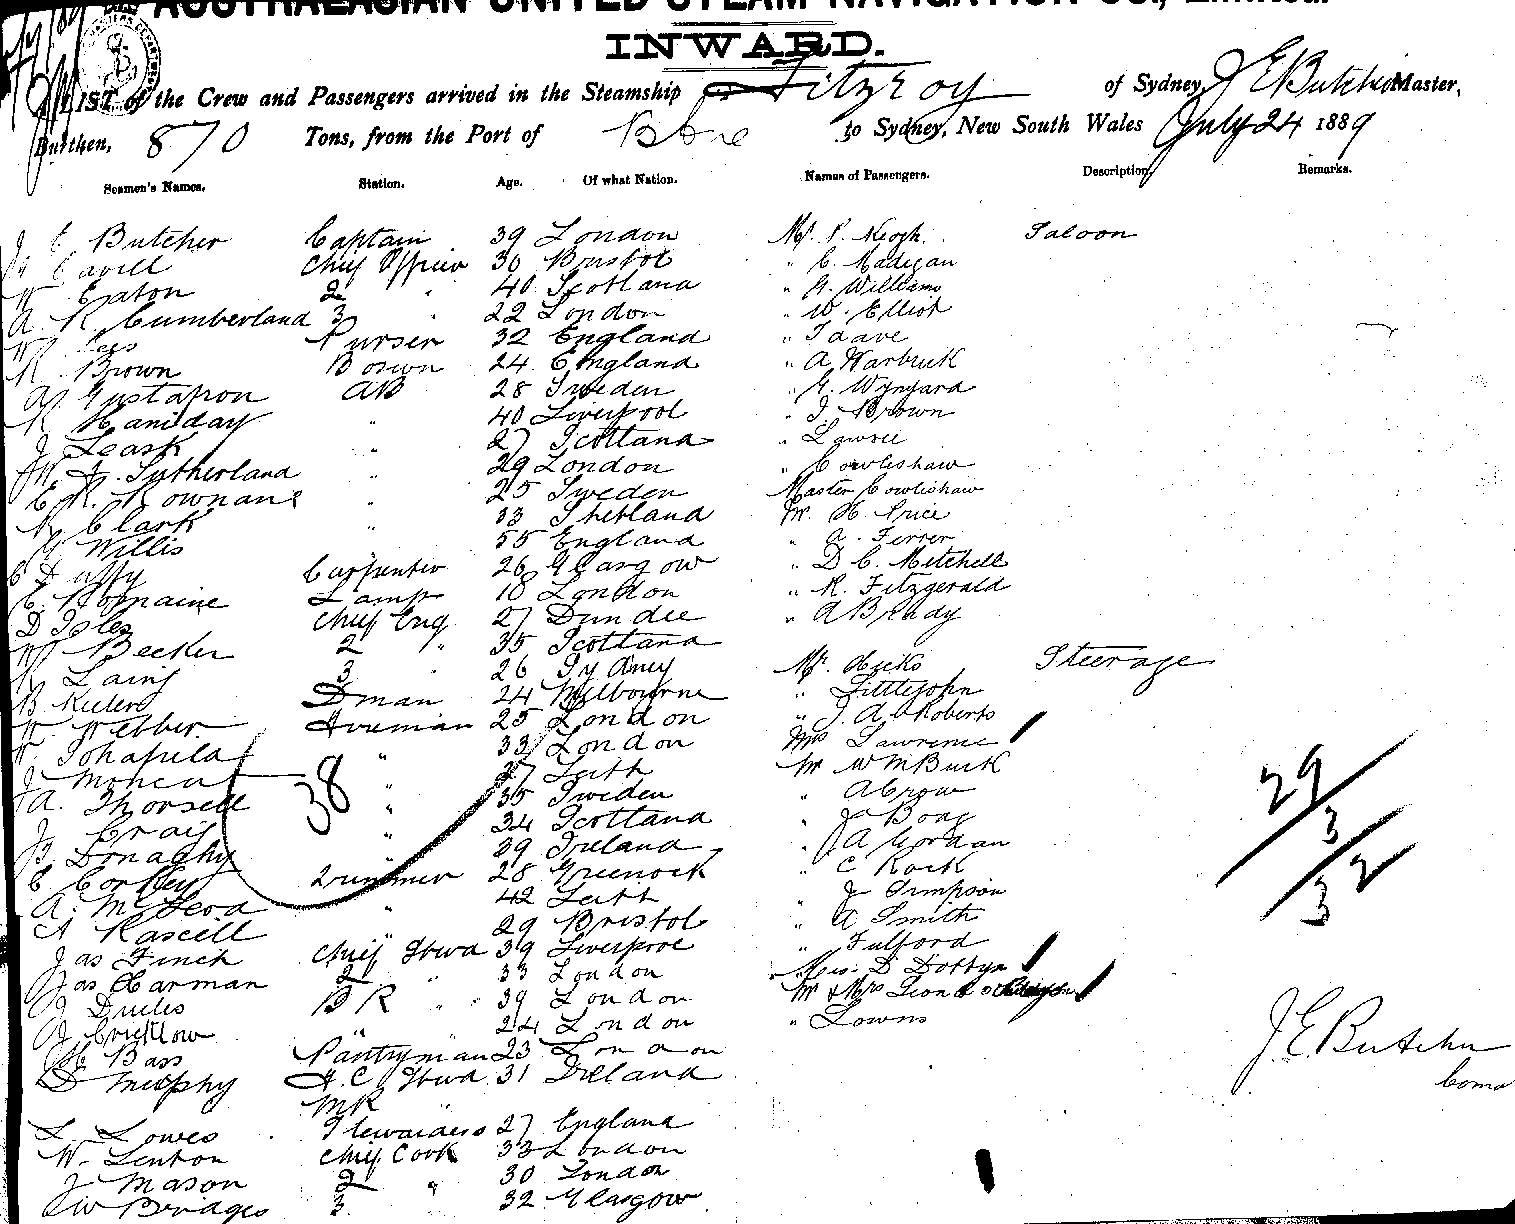 AUSTRALASIAN UNITED STEAM NAVIGATION CO., Limited.
INWARD.
LIST of the Crew and Passengers arrived in the Steamship Fitzroy of Sydney, J E Butcher Master,
Burthen, 870 Tons, from the Port of Bne to Sydney, New South Wales July 24 1889
Seamen's Names. Station. Age. Of what Nation. Names of Passengers. Description. Remarks.
J E Butcher Captain 39 London Mr P. Keogh. Saloon
Cavill Chief Officer 30 Bristol " C. Madigan
W Eaton 2 " 40 Scotland " G. Williams
A. R. Cumberland 3 " 22 London " W. Elliot
Purser 32 England "
R. Brown Bosun 24 England " A Warbrick
A. Gustafson AB 28 Sweden " G. Wynyard
R Haniday " 40 Liverpool " J. Brown
J Leask " 27 Scotland " Lawrie
J. Sutherland " 29 London " Cowlishaw
" 25 Sweden Master Cowlishaw
Clark " 33 Shetland Mr. H. Price
G Willis 55 England " A. Ferrer
Duffy Carpenter 26 Glasgow " D C. Mitchell
C. Romaine Lamps 18 London " R. Fitzgerald
D Isles Chief Eng 27 Dundee " A Brady
W Becker 2 " 35 Scotland
R Laing 3 26 Sydney Mr. Hicks Steerage
B Kielers Dman 24 Melbourne " Littlejohn
W. Webber Fireman 25 London " J. A. Roberts
" 33 London Mrs Lawrence
J Moncur " 27 Leith Mr W M Buik
A. Thorsell " 35 Sweden " A Crow
J Craig 38 " 34 Scotland " J Boag
B. Donaghy " 39 Ireland " A Gordon
C Corkey Trimmer 28 Greenock " C Rock
A. McLeod " 42 Leith " J Simpson
A Rascell 29 Bristol " A Smith
Jas Finch Chief Stwd 39 Liverpool " Fulford
Jas Harman 2 " 33 London Miss D Dottyn
J Duiles BR " 39 London Mr & Mrs
J Critchlow " 24 London " Lowns
Bass Pantryman 23 London
D Murphy F.C. Stwd 31 Ireland
MR "
L Lowes Stewardess 27 England
W. Lenton Chief Cook 33 London
J Mason 2 " 30 London
W Bridges 3 32 Glasgow
29
3
2
3
J. E. Butcher
Coma